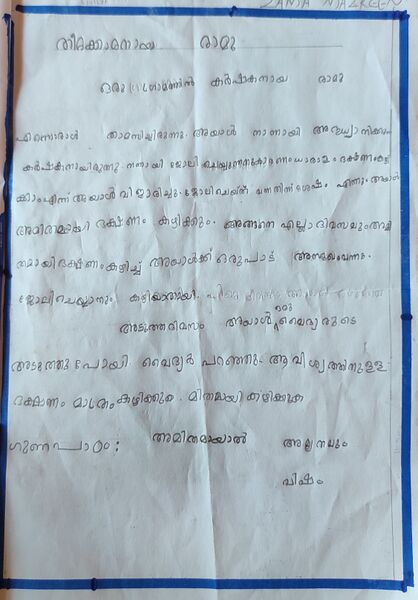 ZANJA NAZREEN
തീറ്റക്കാരനായ രാമു
ഒരു ഗ്രാമത്തിൽ കർഷകനായ രാമു
എന്നൊരാൾ താമസിച്ചിരുന്നു. അയാൾ നന്നായി അദ്ധ്വാനിക്കും
കർഷകനായിരുന്നു. നന്നായി ജോലി ചെയ്യുന്നതുകൊണ്ട് ധാരാളം ഭക്ഷണം കഴി
ക്കാം എന്ന് അയാൾ വിചാരിച്ചു. ജോലി ചെയ്ത് വന്നതിന് ശേഷം എന്നും അയാൾ
അമിതമായി ഭക്ഷണം കഴിക്കും. അങ്ങനെ എല്ലാ ദിവസവും അമി
തമായി ഭക്ഷണം കഴിച്ച് അയാൾക്ക് ഒരുപാട് അസുഖം വന്നു.
ജോലി ചെയ്യാനും കഴിയാതായി.
അടുത്ത ദിവസം അയാൾ ഒരു വൈദ്യരുടെ
അടുത്തു പോയി വൈദ്യർ പറഞ്ഞു. ആവിശ്യത്തിനുള്ള
ഭക്ഷണം മാത്രം കഴിക്കുക. മിതമായി കഴിക്കുക
ഗുണപാഠം: അമിതമായാൽ അമൃതവും
വിഷം